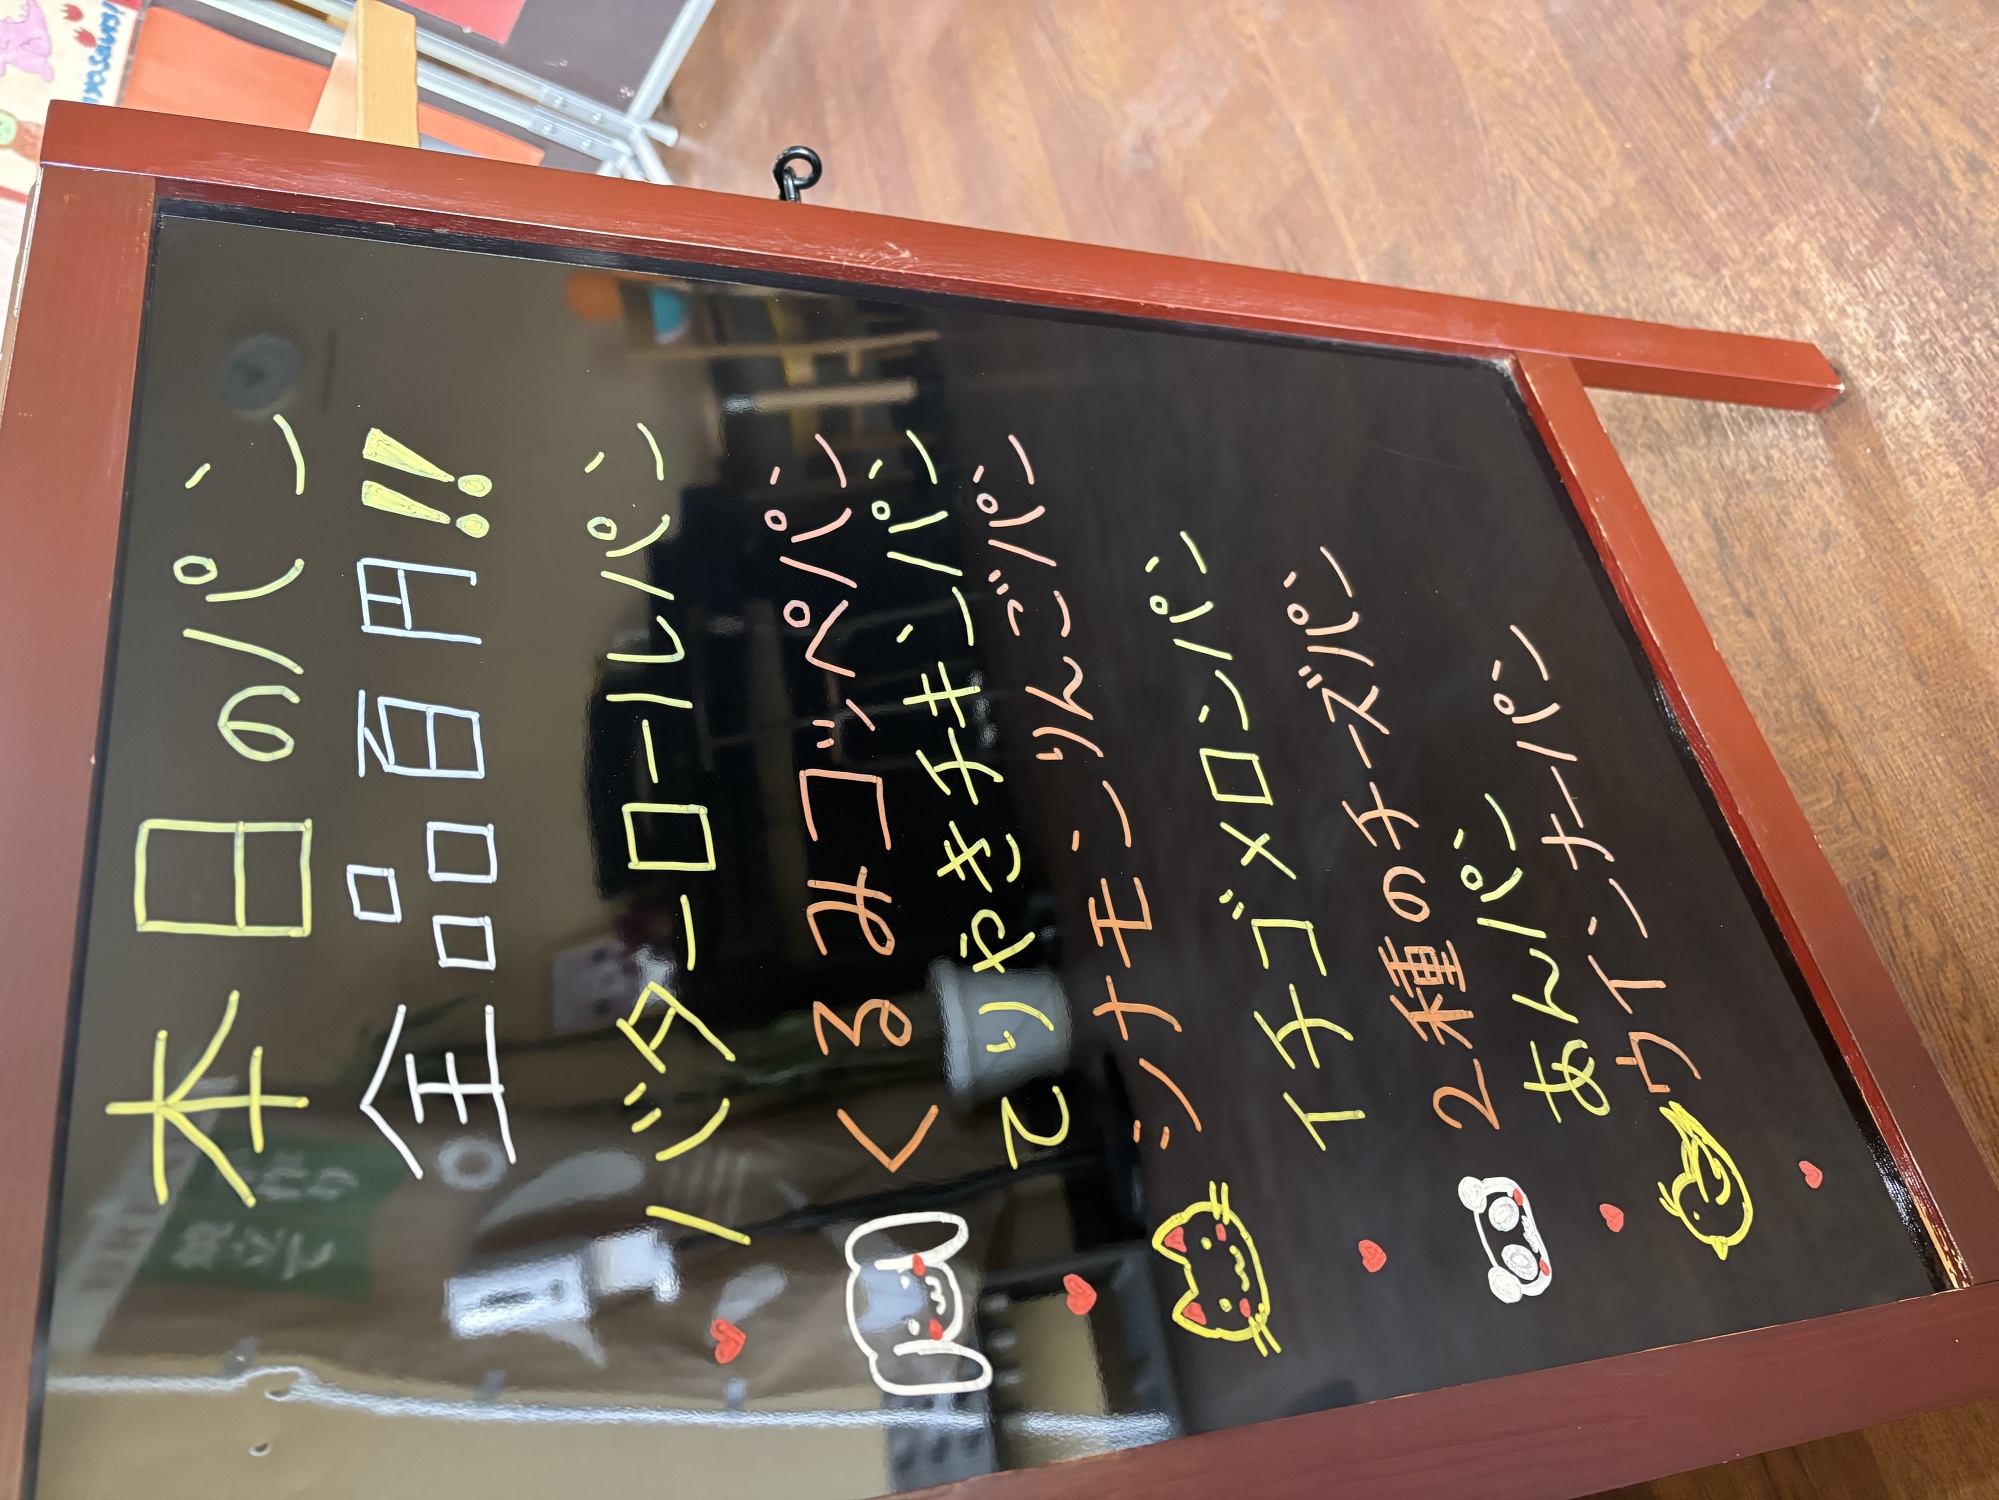 本日のパン
全品百円!!
バターロールパン
くるみコッペパン
てりやきチキンパン
シナモンりんごパン
イチゴメロンパン
2種のチーズパン
あんパン
ウインナーパン